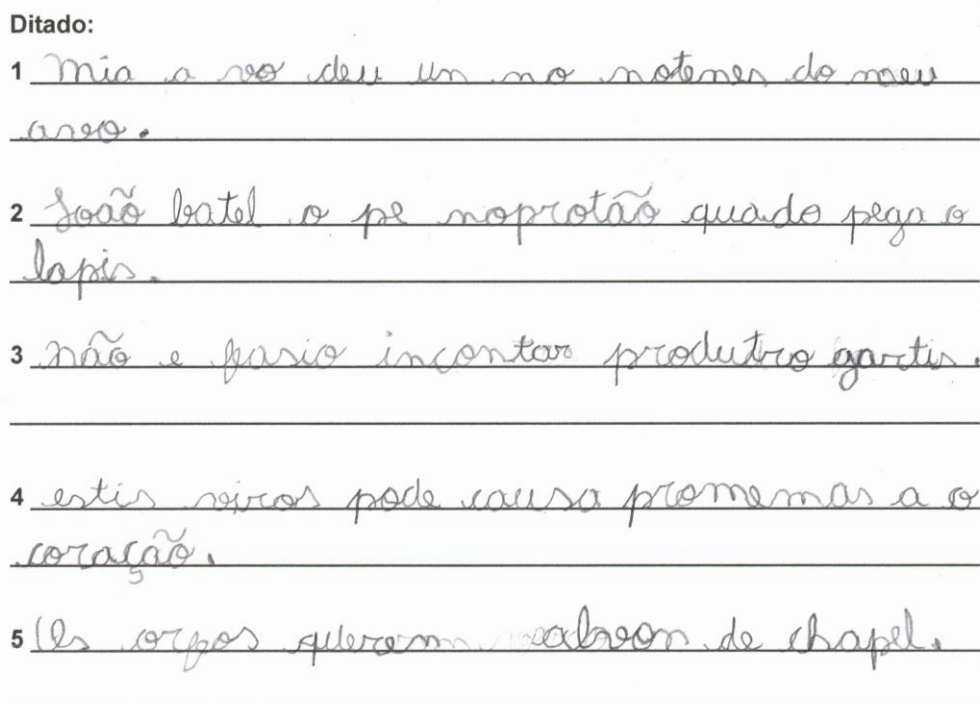 Ditado:
1 Mia a vo deu um no notemes do meu
avoo.
2 João batel o pe noprotão quado pega o
lapis.
3 não e fasio incontar produtro gartis.
4 estis viros pode causa promemas a o
coração.
5 Os orpos querem de chapel.